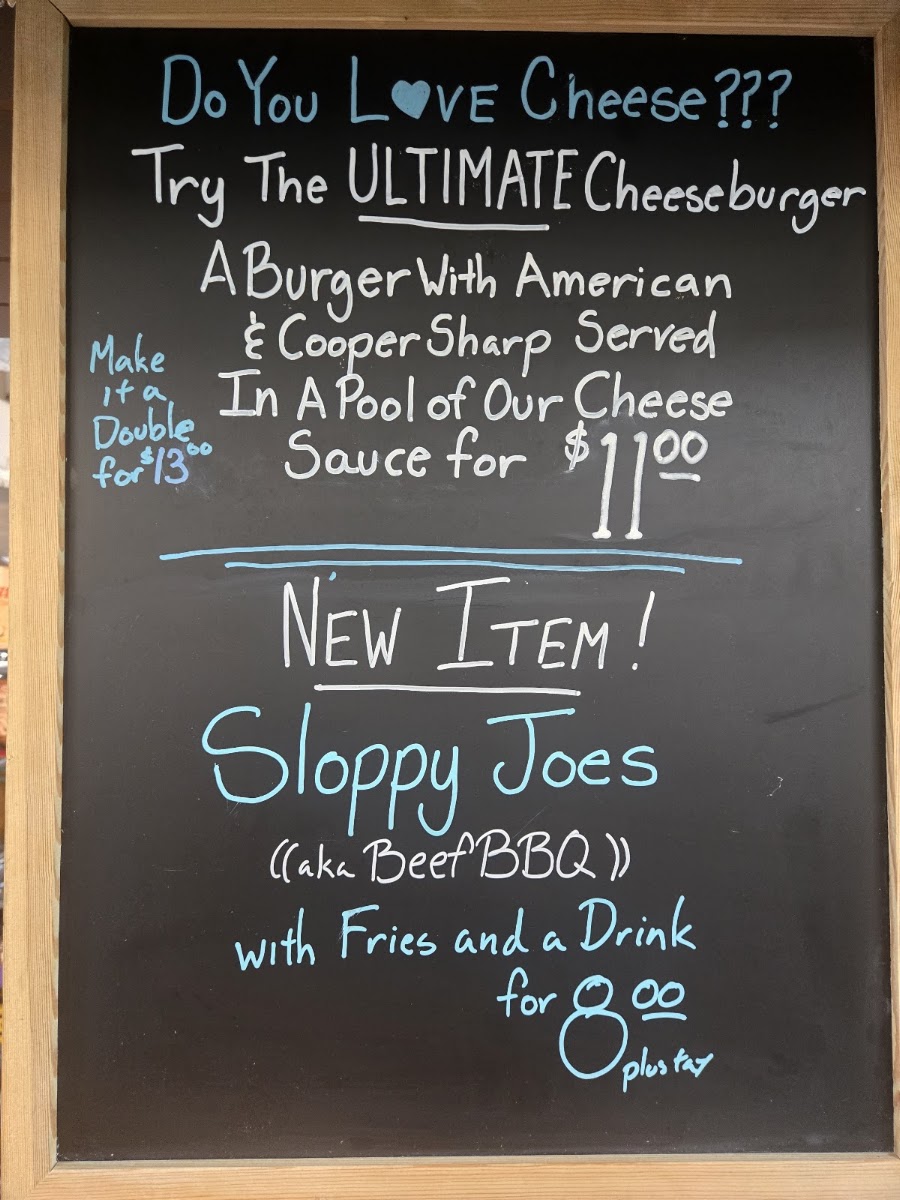 Do You L♥VE Cheese???
Try The ULTIMATE Cheeseburger
A Burger With American
& Cooper Sharp Served
In A Pool of Our Cheese
Sauce for $11.00
Make
it a
Double
for $13.00
NEW ITEM!
Sloppy Joes
((aka Beef BBQ))
with Fries and a Drink
for 8.00
plus tax